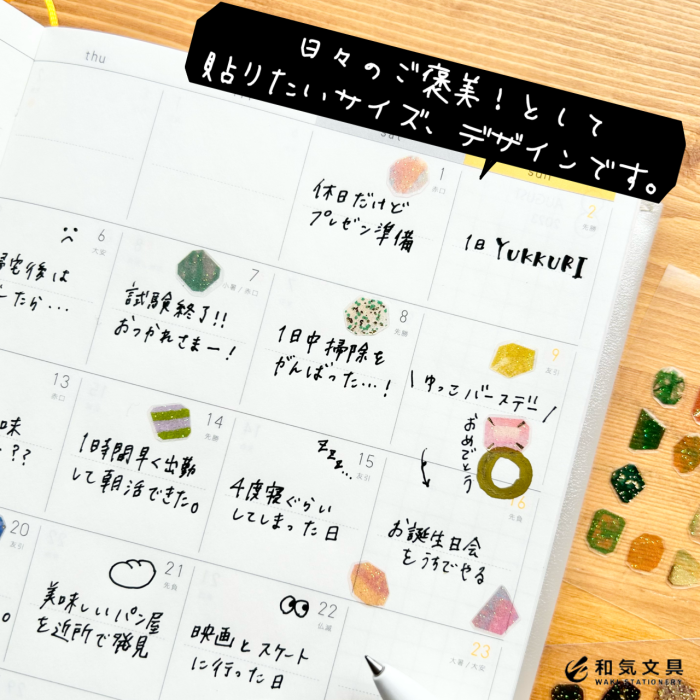 日々のご褒美!として
貼りたいサイズ、デザインです。
thu
sun
1
赤口
休日だけど
プレゼン準備
2
先勝
1日 YUKKURI
6
大安
帰宅後は
したら…
7
小暑/赤口
試験終了!!
おつかれさまー!
8
先勝
1日中掃除を
がんばった…!
9
友引
\ゆっこバースデー/
おめでとう
13
赤口
味
??
14
先勝
1時間早く出勤
して朝活できた。
zzz...
15
友引
4度寝ぐらい
してしまった日
16
先負
お誕生日会
をうちでやる
20
友引
21
先負
美味しいパン屋
を近所で発見
22
仏滅
映画とスケート
に行った日
23
大暑/大安
和気文具
WAKI STATIONERY